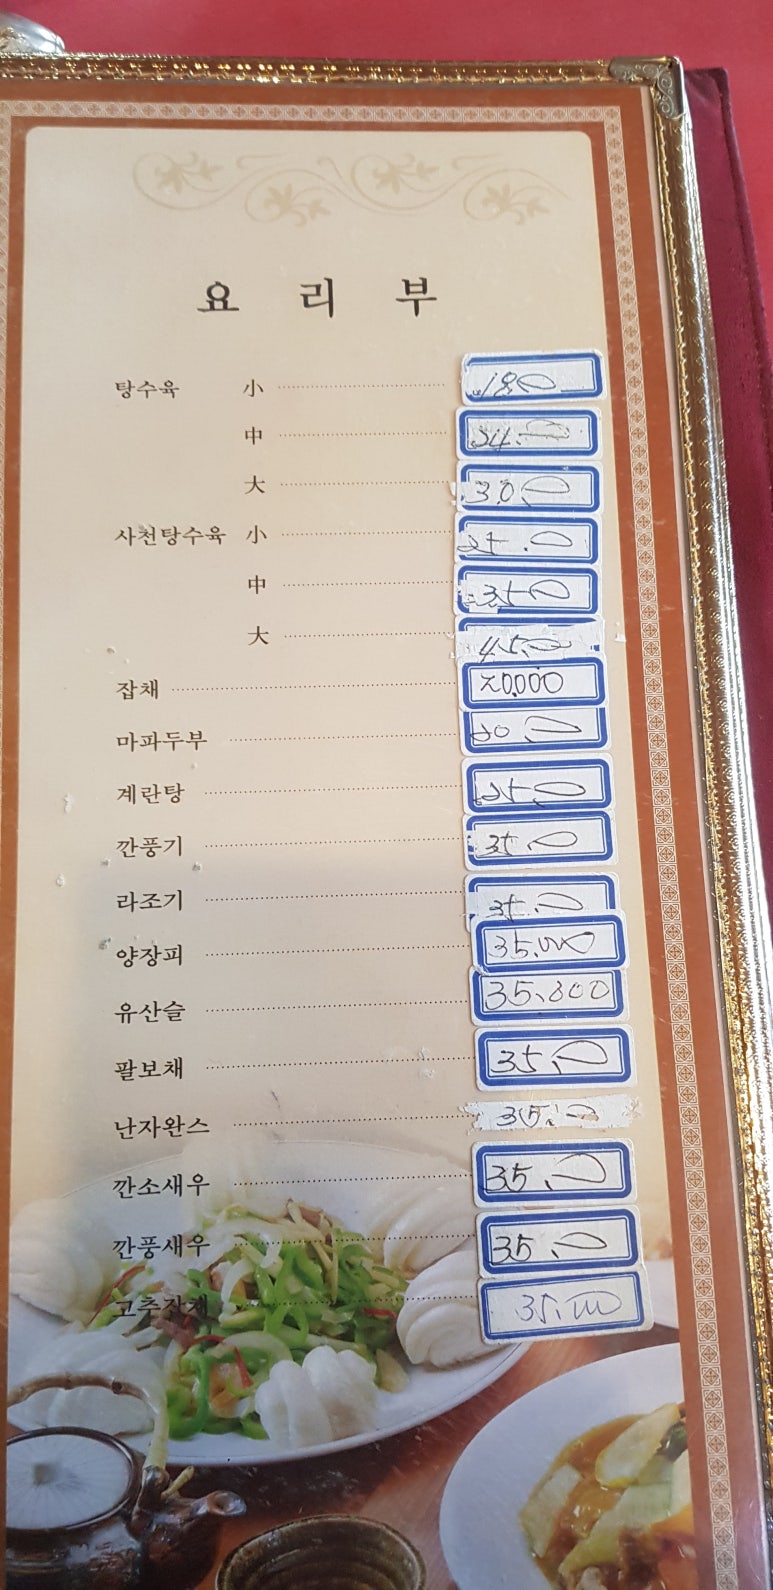 요리부
탕수육 小 18.0
中 24.0
大 30
사천탕수육 小 25.0
中 35.0
大 45.0
잡채 20,000
마파두부
계란탕 25.0
깐풍기 35.0
라조기 35.0
양장피 35.000
유산슬 35.000
팔보채 35.0
난자완스 35.0
깐소새우 35.0
깐풍새우 35.0
고추잡채 35.000